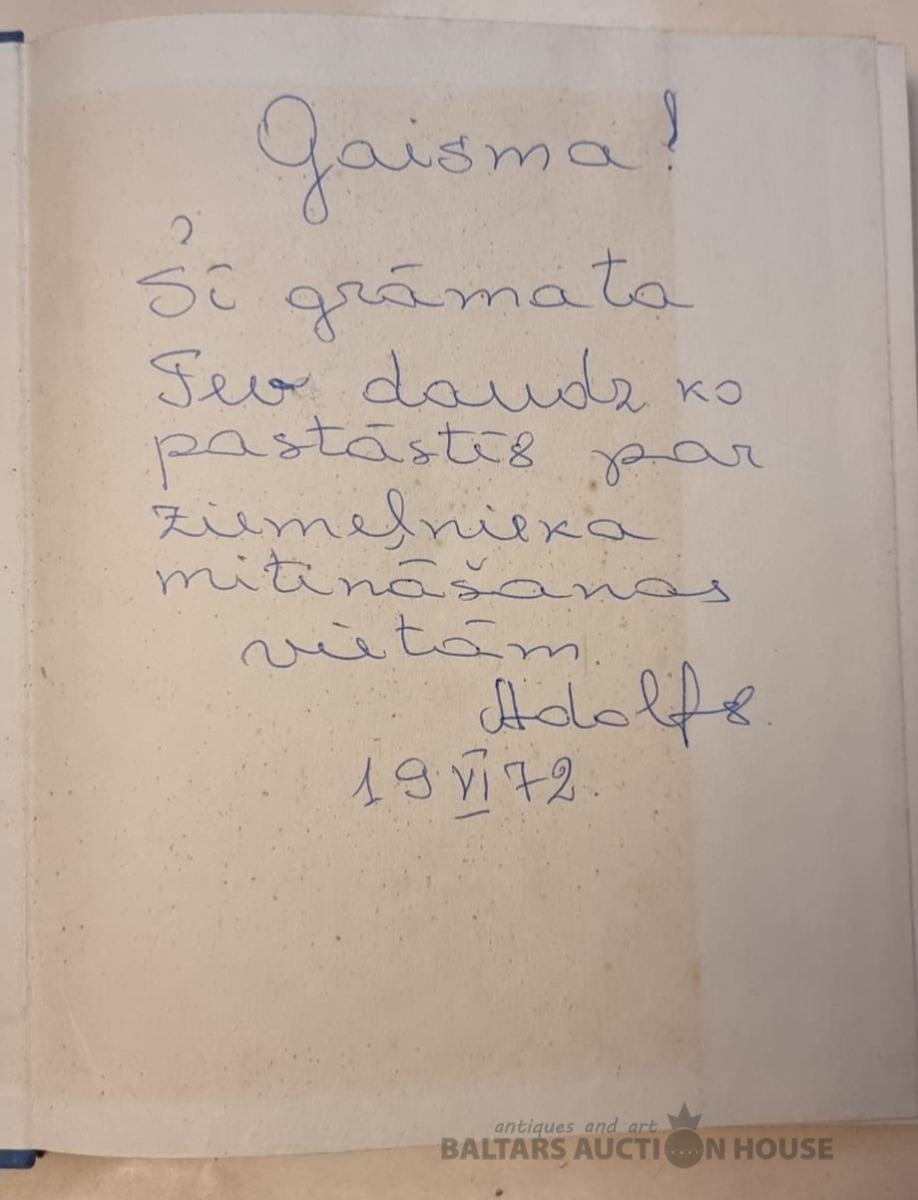 Gaisma!
Šī grāmata
Tev daudz ko
pastāstīs par
ziemeļnieka
mitināšanas
vietām
Adolfs.
19 VI 72.
antiques and art
BALTARS AUCTION HOUSE